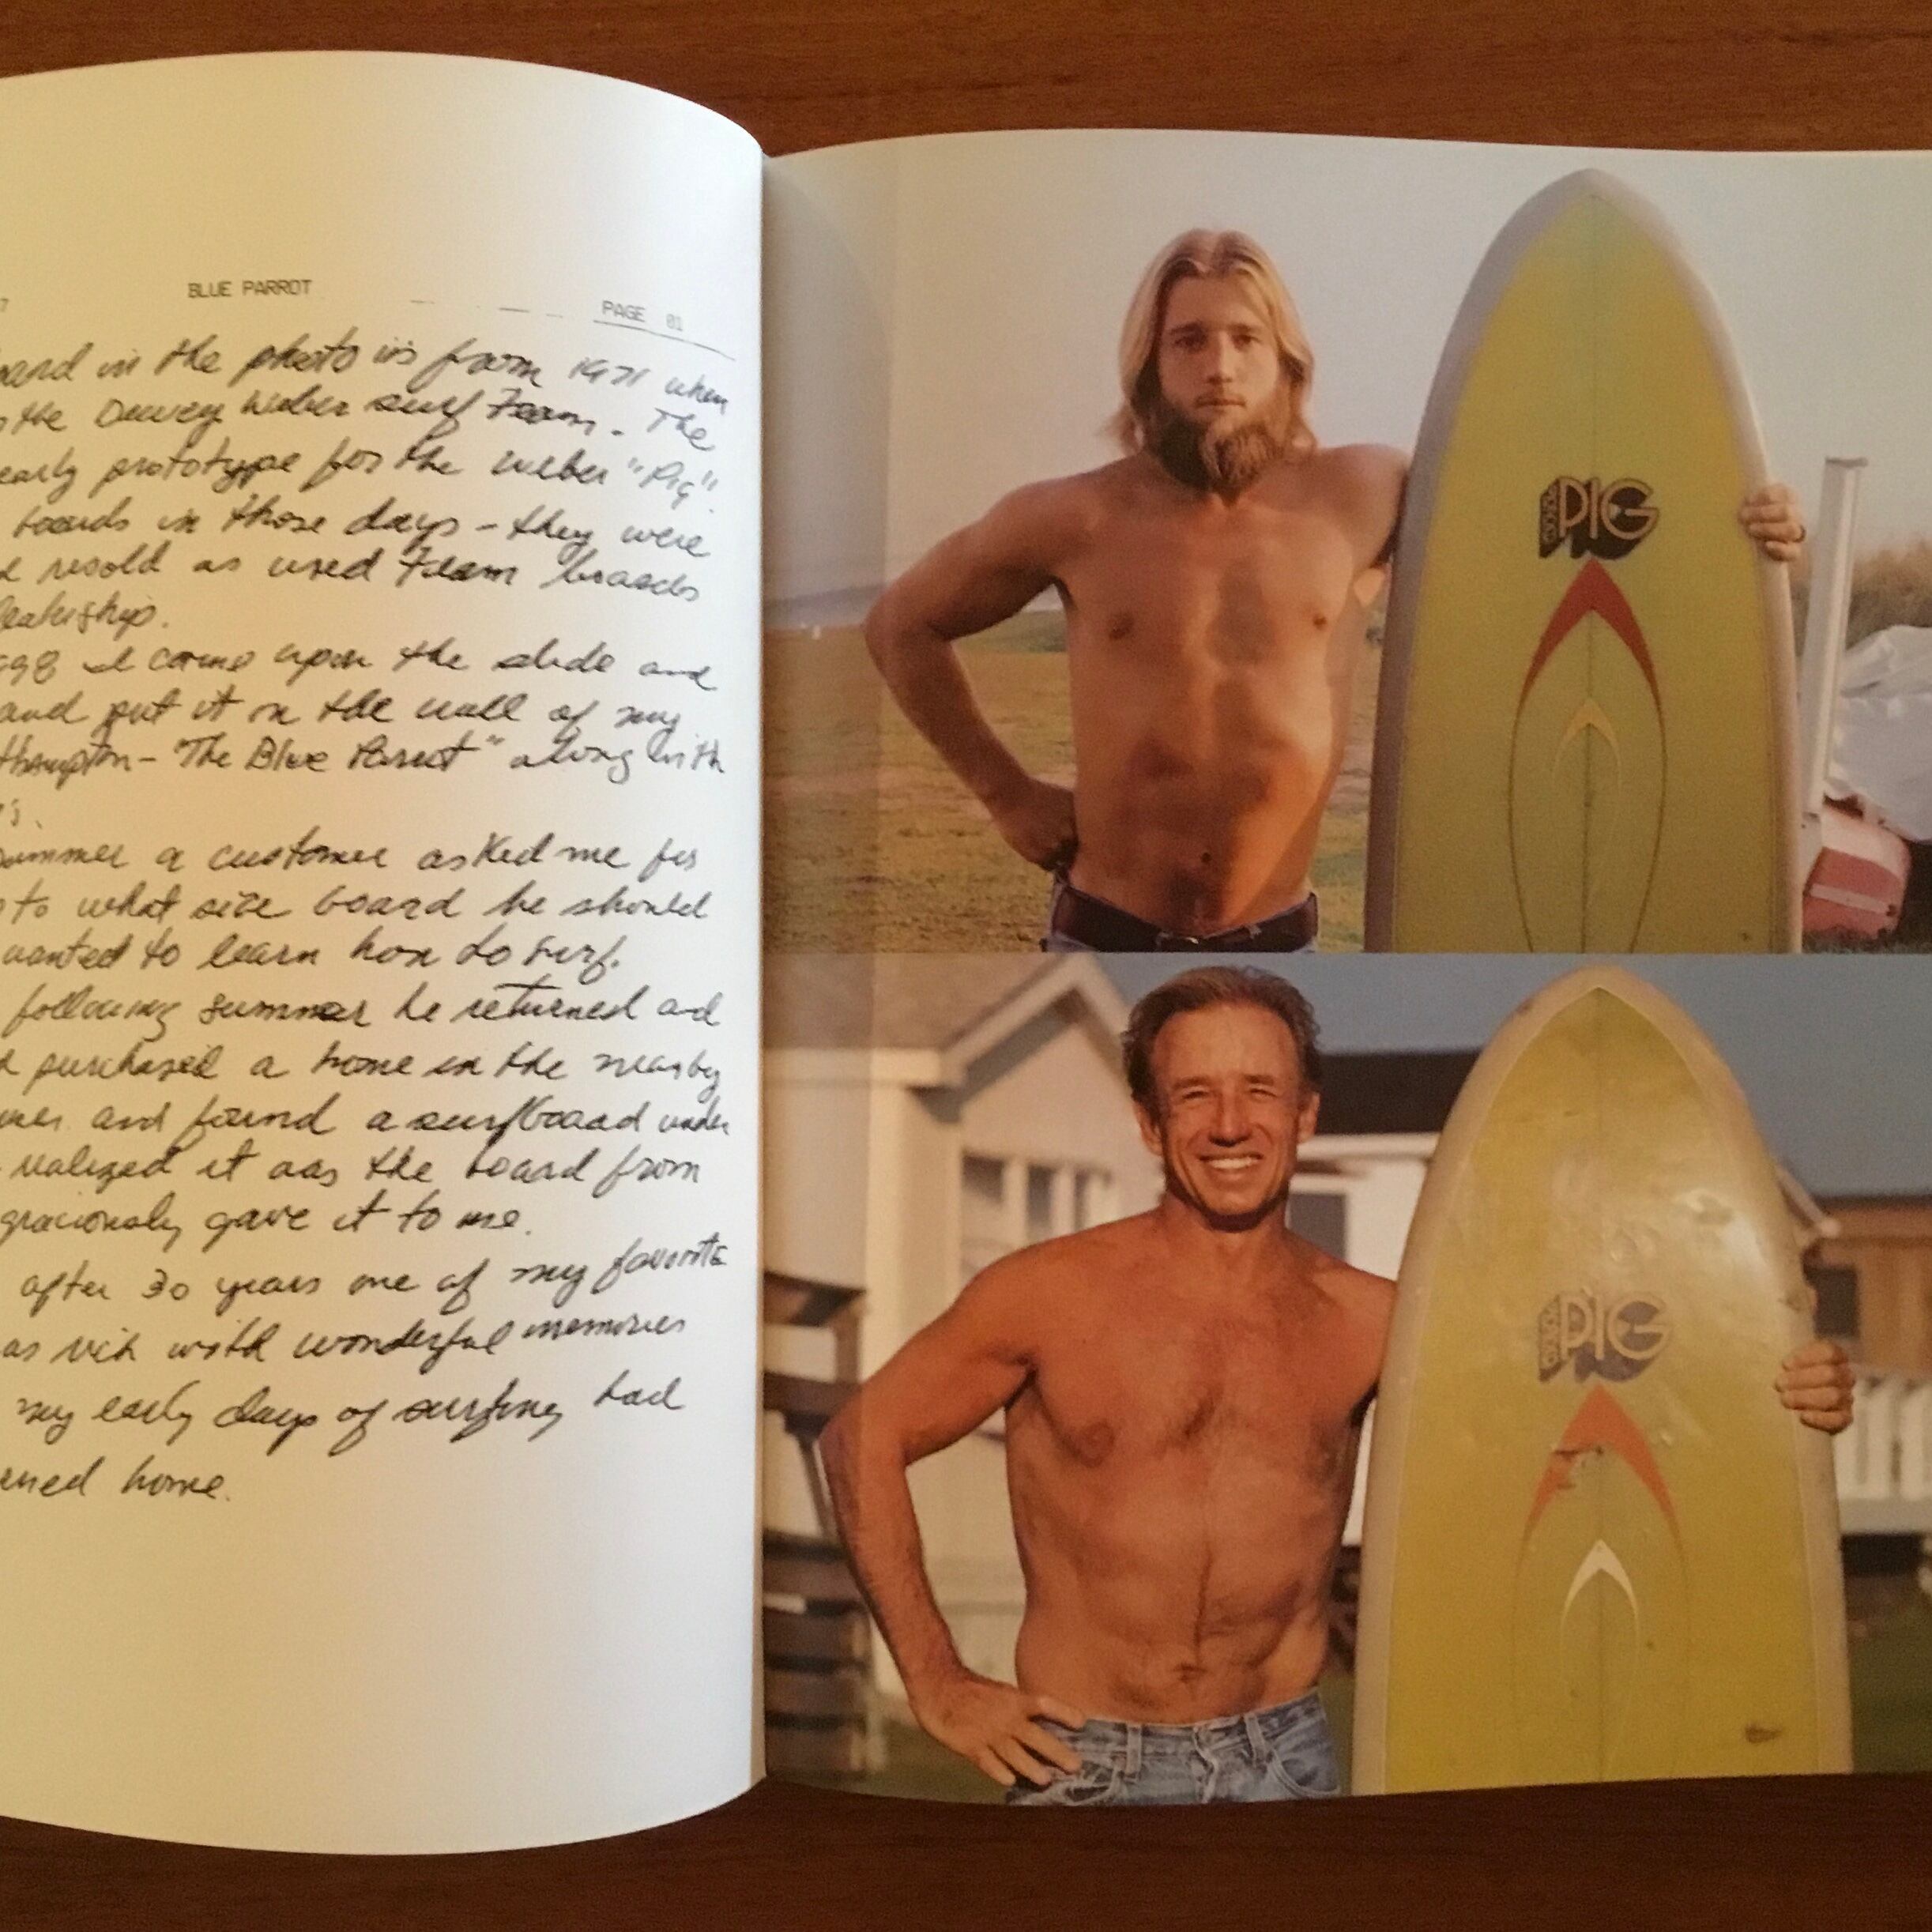 7 BLUE PARROT PAGE 01
in the photo is from 1971 when
the Dewey Weber surf Team. The
early prototype for the weber "Pig".
boards in those days - they were
resold as used Team boards
998 I came upon the slide and
and put it on the wall of my
- "The Blue Parrot" along with
summer a customer asked me for
to what size board he should
wanted to learn how to surf.
following summer he returned and
purchased a home in the nearby
and found a surfboard under
realized it was the board from
graciously gave it to me.
after 30 years one of my favorite
as rich with wonderful memories
my early days of surfing had
rned home.
PIG
PIG